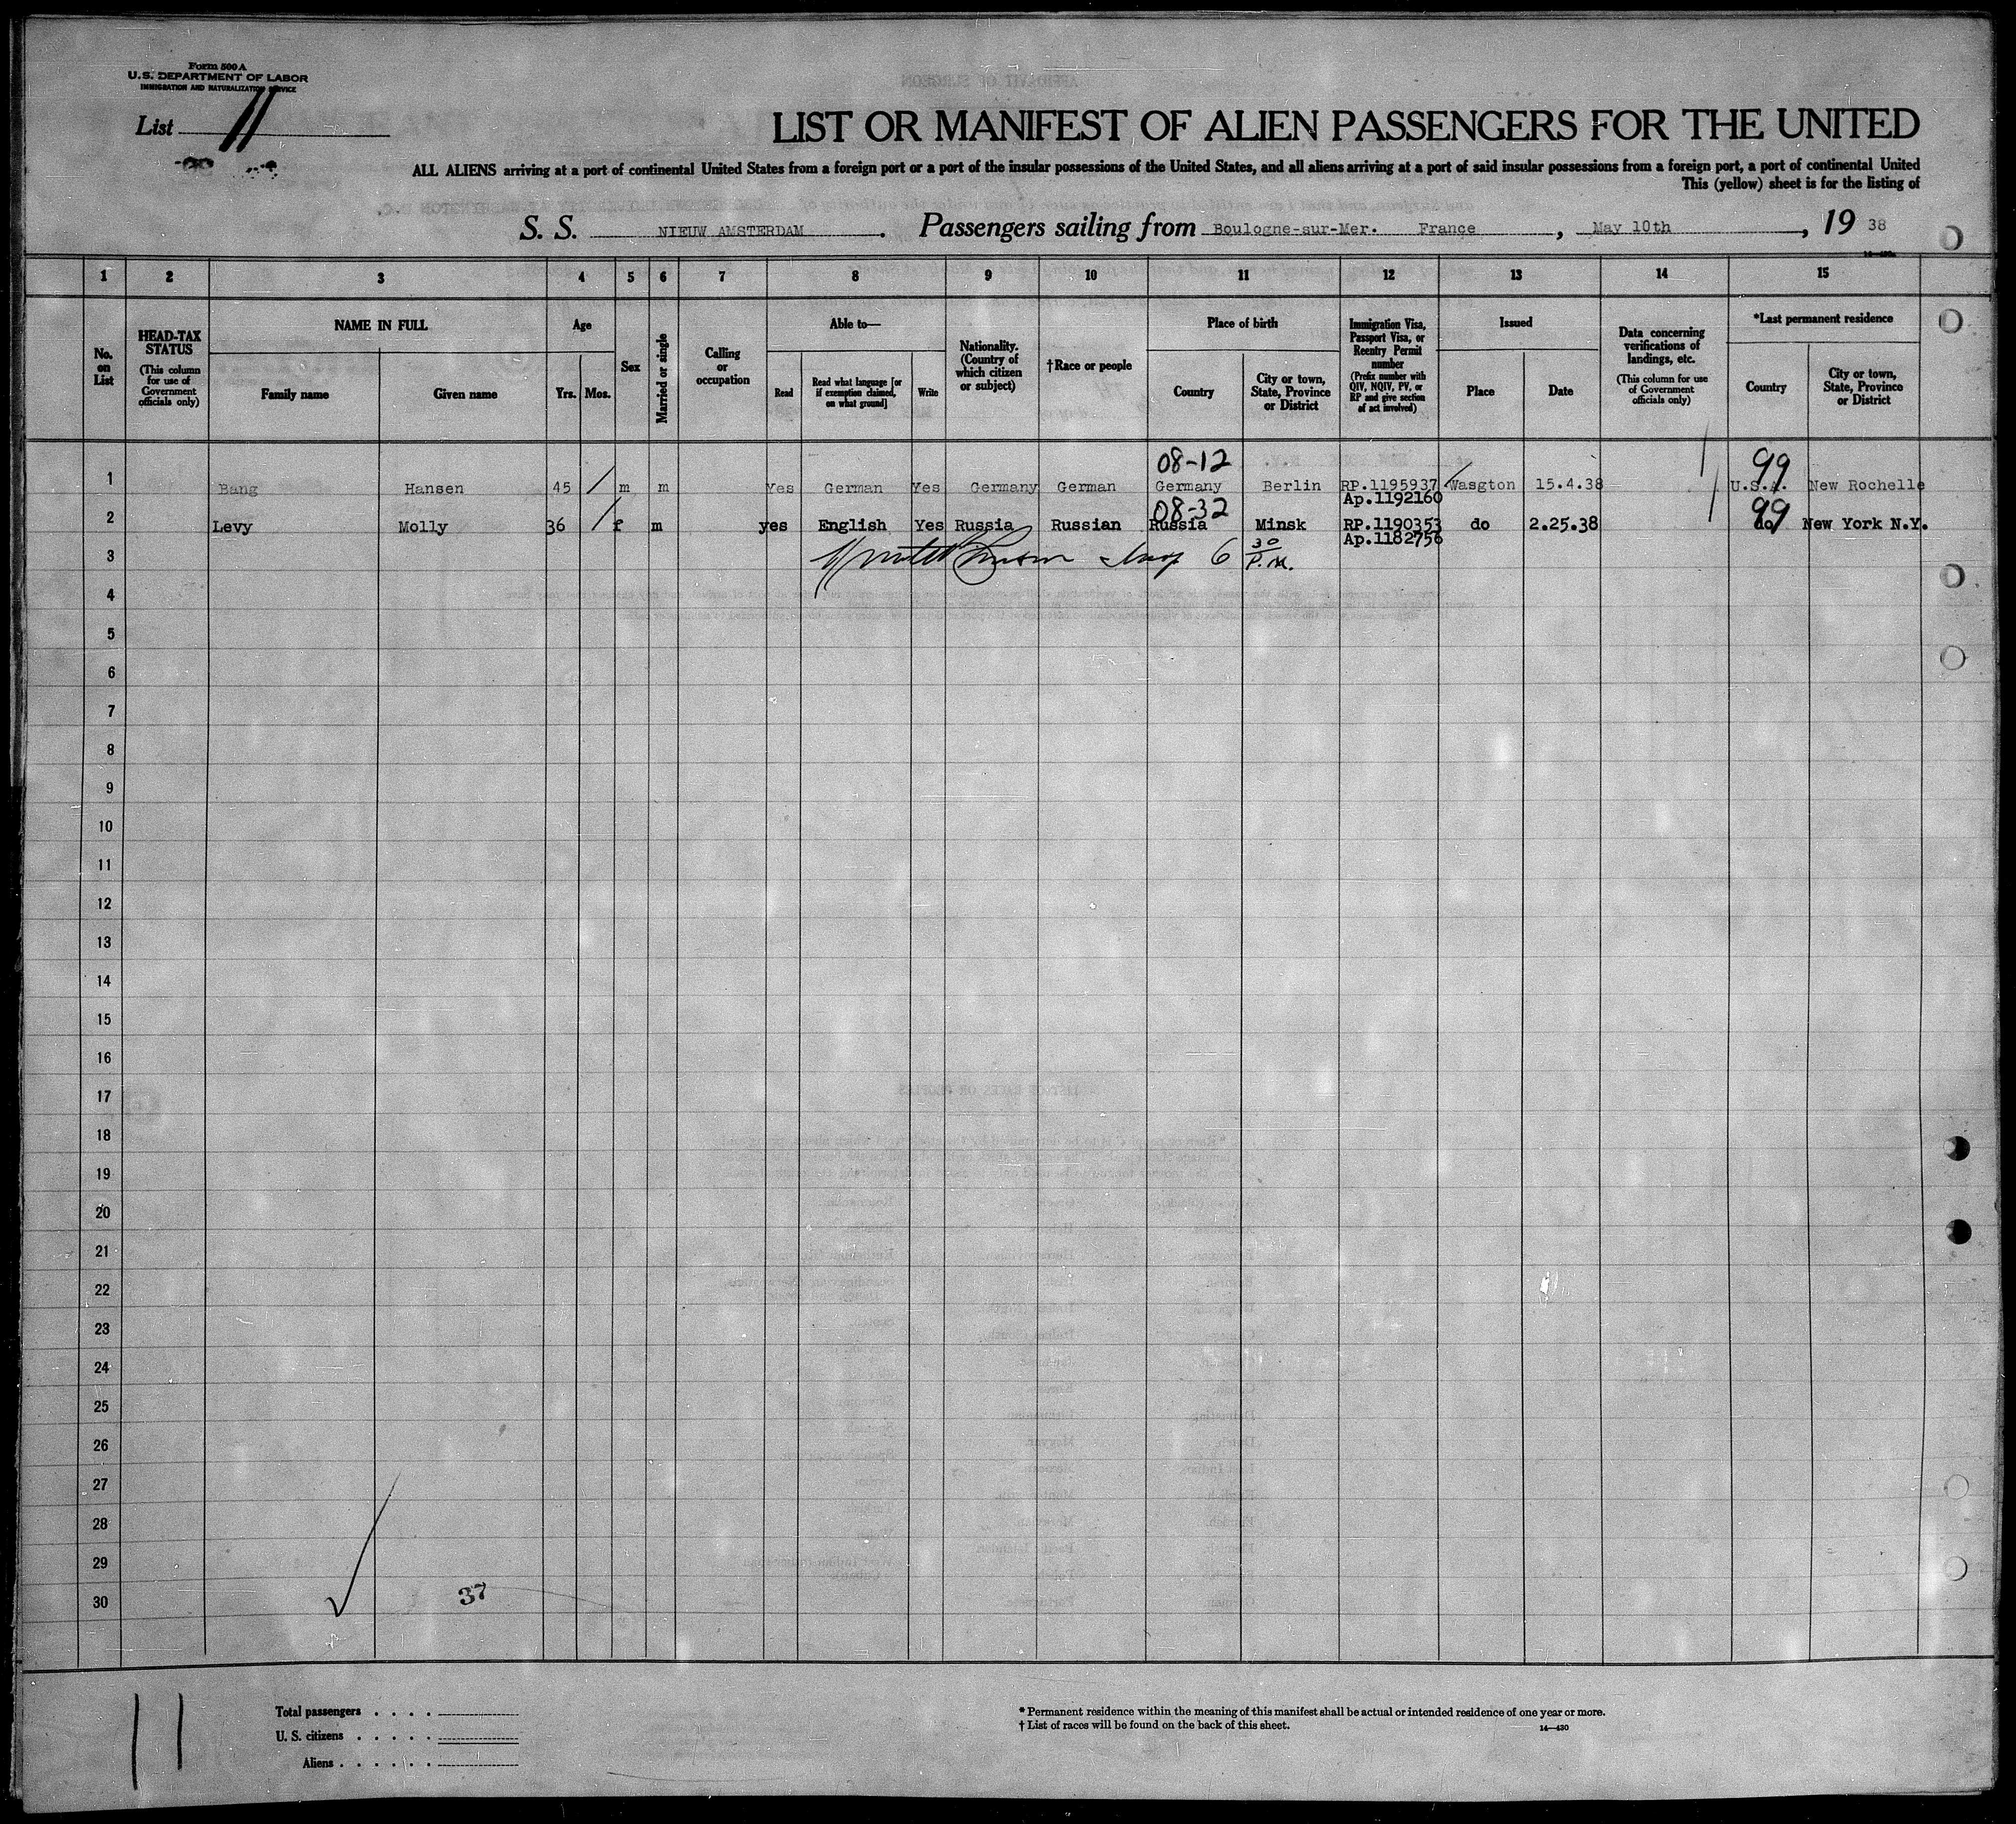 Form 500 A
U. S. DEPARTMENT OF LABOR
IMMIGRATION AND NATURALIZATION SERVICE
List 11
LIST OR MANIFEST OF ALIEN PASSENGERS FOR THE UNITED
ALL ALIENS arriving at a port of continental United States from a foreign port or a port of the insular possessions of the United States, and all aliens arriving at a port of said insular possessions from a foreign port, a port of continental United
This (yellow) sheet is for the listing of
S. S. NIEUW AMSTERDAM. Passengers sailing from Boulogne-sur-Mer. France, May 10th, 19 38
1 2 3 4 5 6 7 8 9 10 11 12 13 14 15
No. on List
HEAD-TAX STATUS (This column for use of Government officials only)
NAME IN FULL
Family name Given name
Age
Yrs. Mos.
Sex
Married or single
Calling or occupation
Able to—
Read Read what language [or if exemption claimed, on what ground] Write
Nationality. (Country of which citizen or subject)
†Race or people
Place of birth
Country City or town, State, Province or District
Immigration Visa, Passport Visa, or Reentry Permit number (Prefix number with QIV, NQIV, PV, or RP and give section of act involved)
Issued
Place Date
Data concerning verifications of landings, etc. (This column for use of Government officials only)
*Last permanent residence
Country City or town, State, Province or District
08-12 99
1 Bang Hansen 45 / m m Yes German Yes Germany German Germany Berlin RP.1195937 Wasgton 15.4.38 U.S.A. New Rochelle
Ap.1192160
08-32 99
2 Levy Molly 36 / f m yes English Yes Russia Russian Russia Minsk RP.1190353 do 2.25.38 do New York N.Y.
Ap.1182756
3 6 30 P.M.
4
5
6
7
8
9
10
11
12
13
14
15
16
17
18
19
20
21
22
23
24
25
26
27
28
29
30
37
11
Total passengers . . . .
U. S. citizens . . . . .
Aliens . . . . . .
* Permanent residence within the meaning of this manifest shall be actual or intended residence of one year or more.
† List of races will be found on the back of this sheet. 14—430